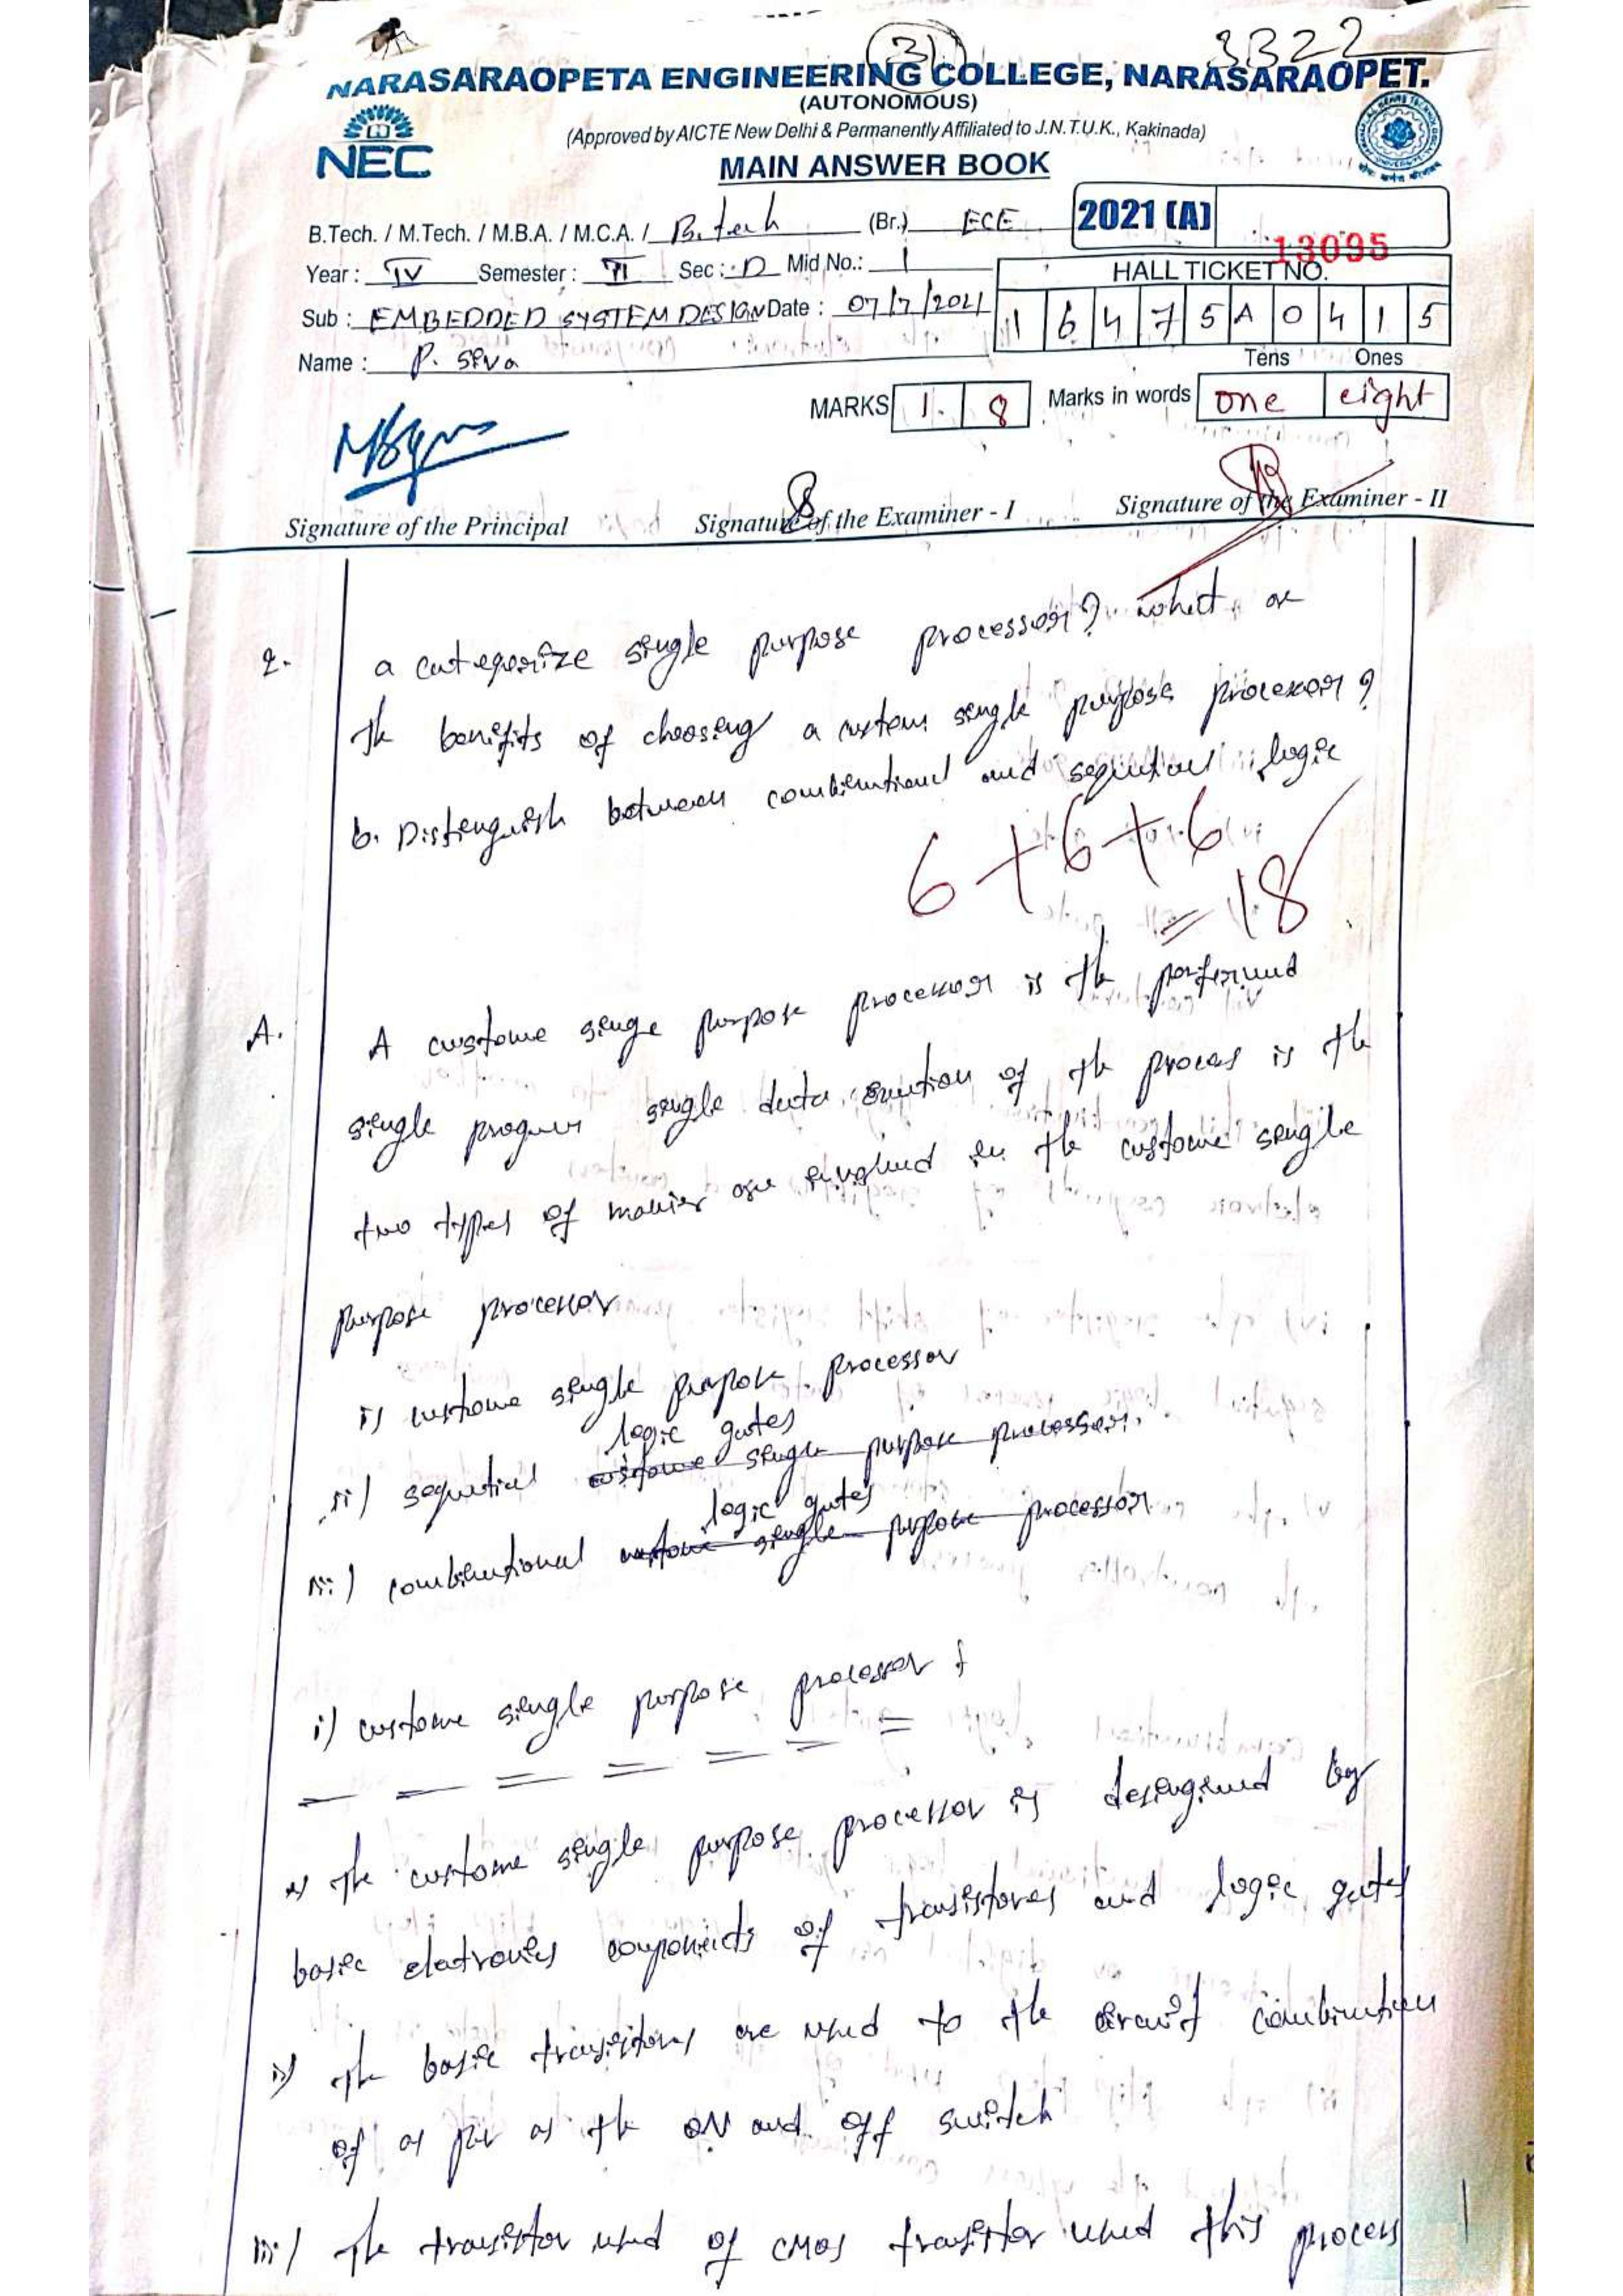 31
3322
NARASARAOPETA ENGINEERING COLLEGE, NARASARAOPET.
(AUTONOMOUS)
(Approved by AICTE New Delhi & Permanently Affiliated to J.N.T.U.K., Kakinada)
NEC
MAIN ANSWER BOOK
B.Tech. / M.Tech. / M.B.A. / M.C.A. / B.tech (Br.) ECE 2021 (A)
13095
Year : IV Semester : II Sec : D Mid No.: 1 HALL TICKET NO.
Sub : EMBEDDED SYSTEM DESIGN Date : 07/7/2021 16475A0415
Name : P. Siva Tens Ones
MARKS 1. 8 Marks in words one eight
Signature of the Principal Signature of the Examiner - I Signature of the Examiner - II
2. a categorize single purpose processor? what are
the benifits of choosing a custom single purpose processor?
b. Distinguish between combinational and sequential logic
6+6+6
= 18
A. A custome single purpose processor is the performed
single program single data of the process is the
two types of are in the custome single
purpose processor
i) custome single purpose processor
logic gates
ii) sequential custome single purpose processor.
logic gates
iii) combinational custome single purpose processor
i) custome single purpose processor :
i) the custome single purpose processor is designed by
basic electronics components of transistores and logic gates
ii) the basic transistors are used to the circuit combination
of as per as the ON and off switch
iii) the transistor used of CMOS transistor used this process